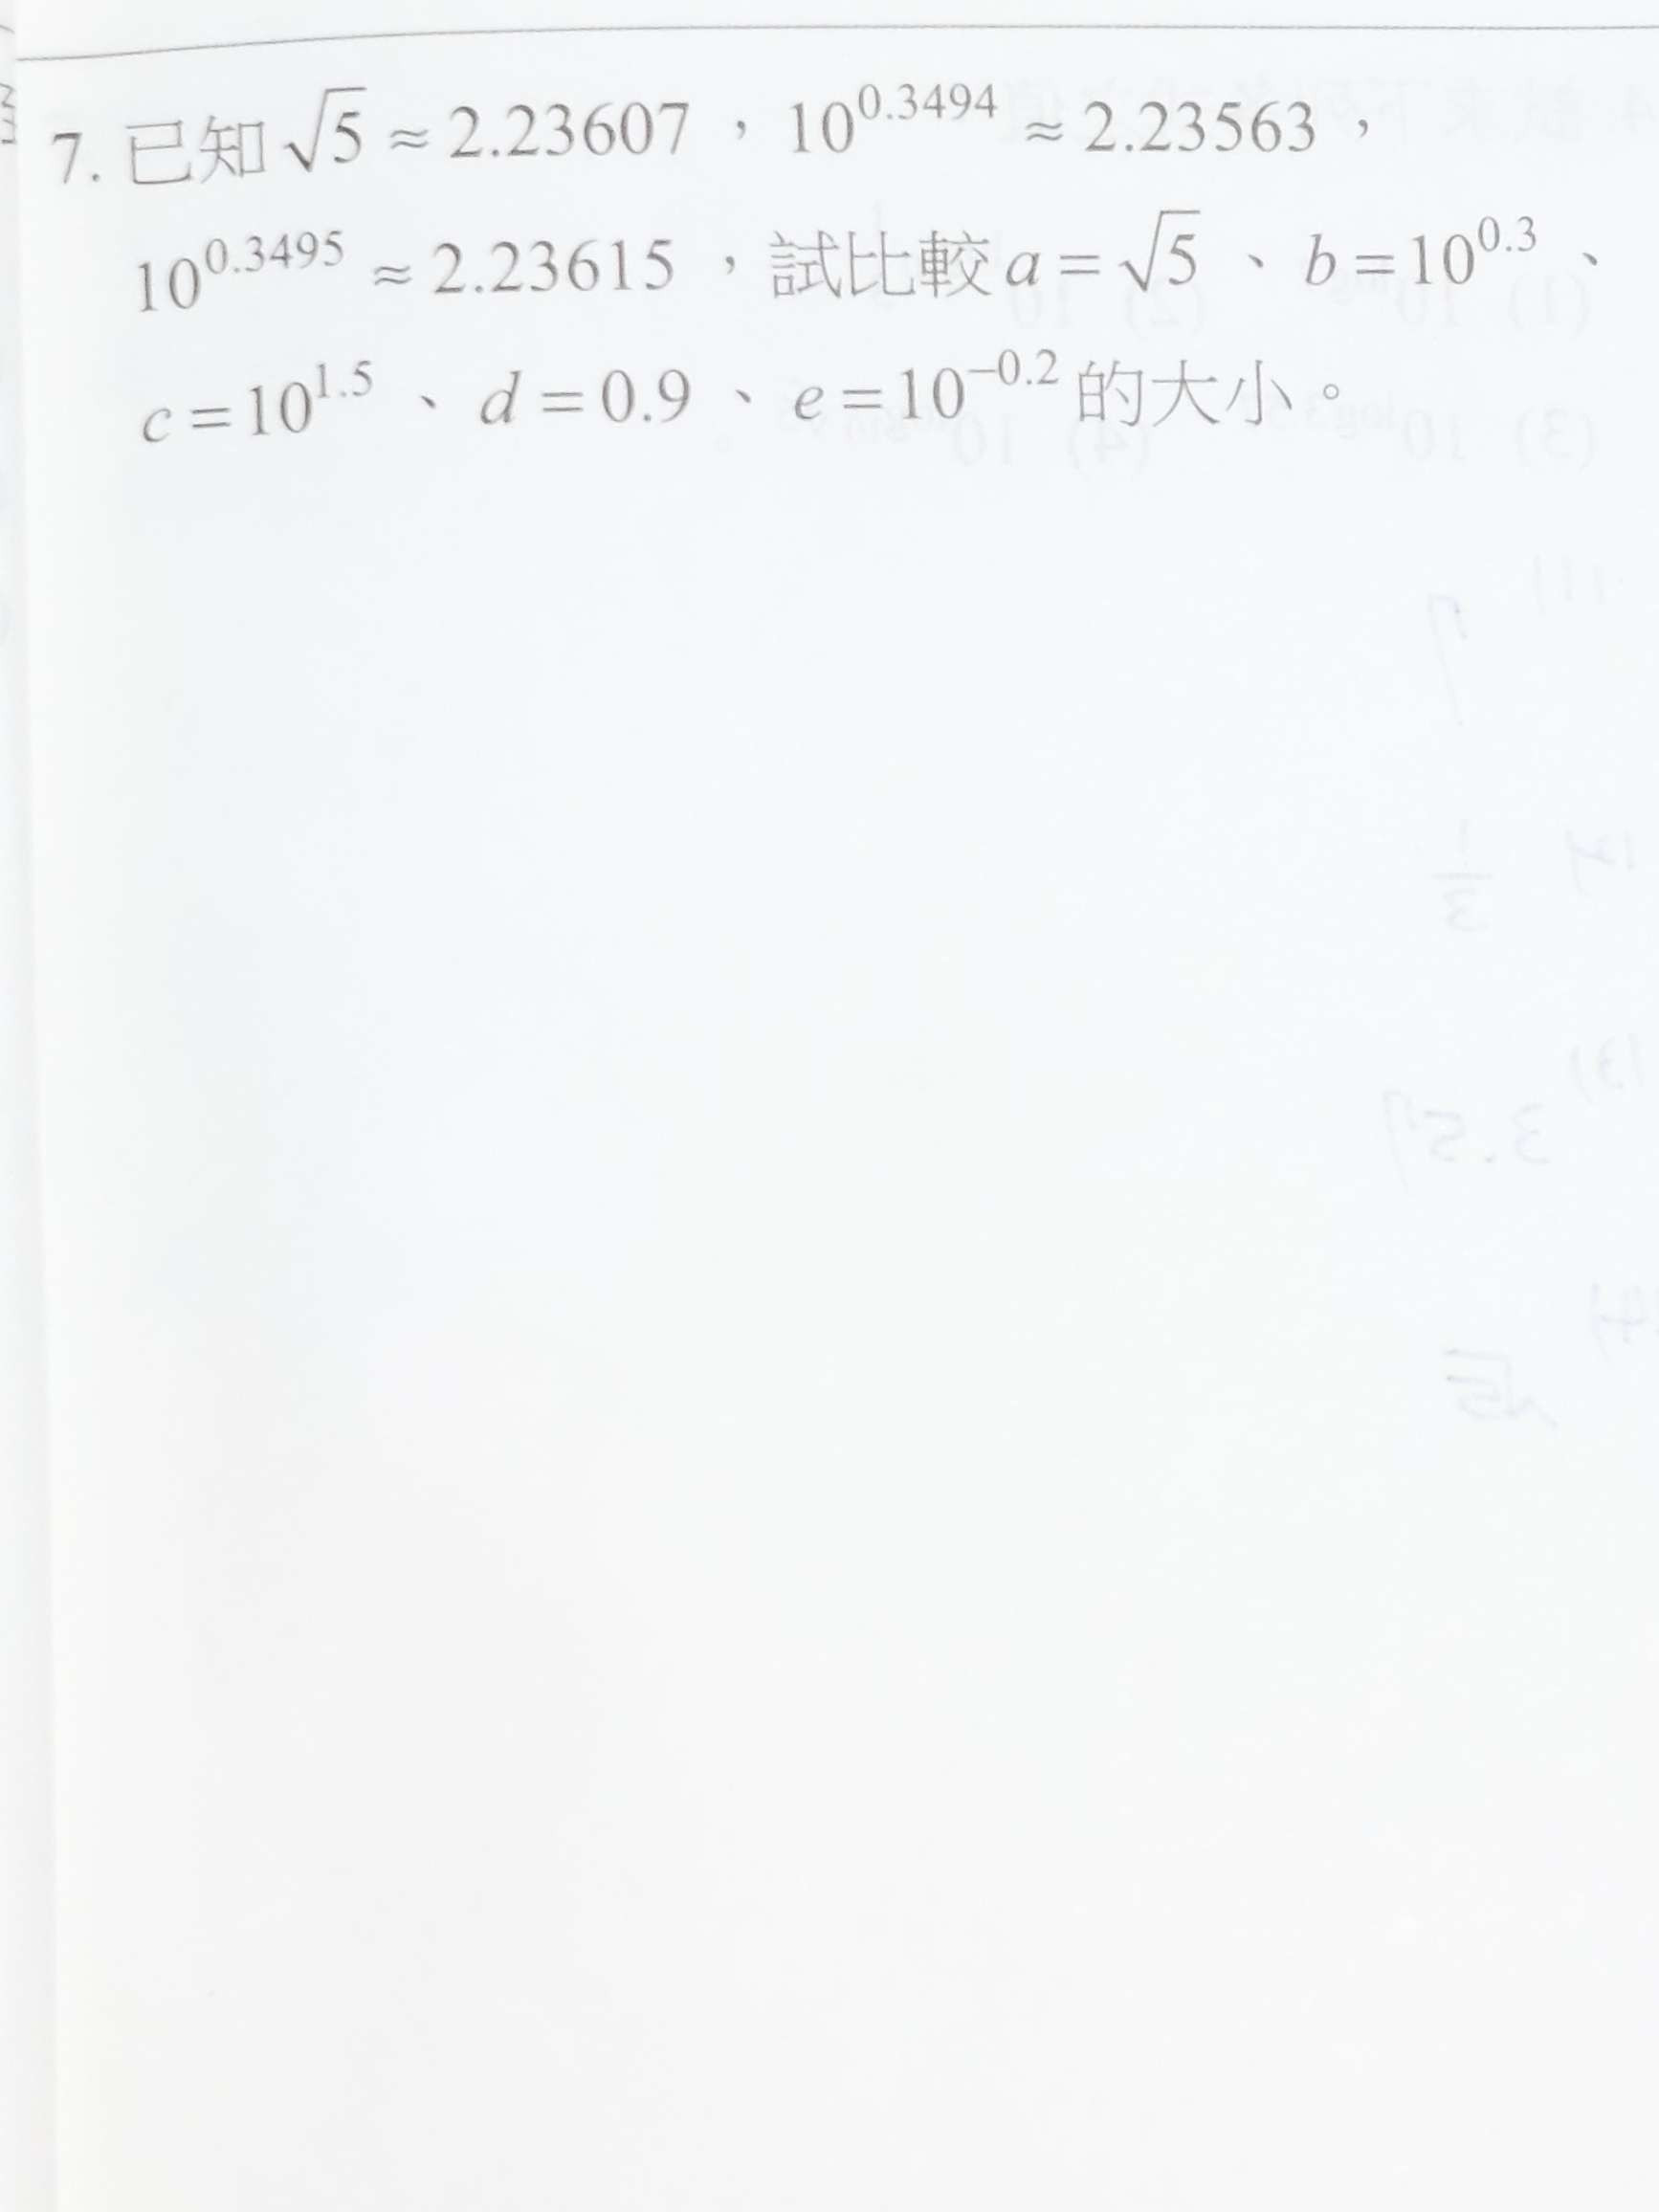 7. 已知√5 ≈ 2.23607，10^0.3494 ≈ 2.23563，
10^0.3495 ≈ 2.23615，試比較 a = √5、b = 10^0.3、
c = 10^1.5、d = 0.9、e = 10^−0.2 的大小。